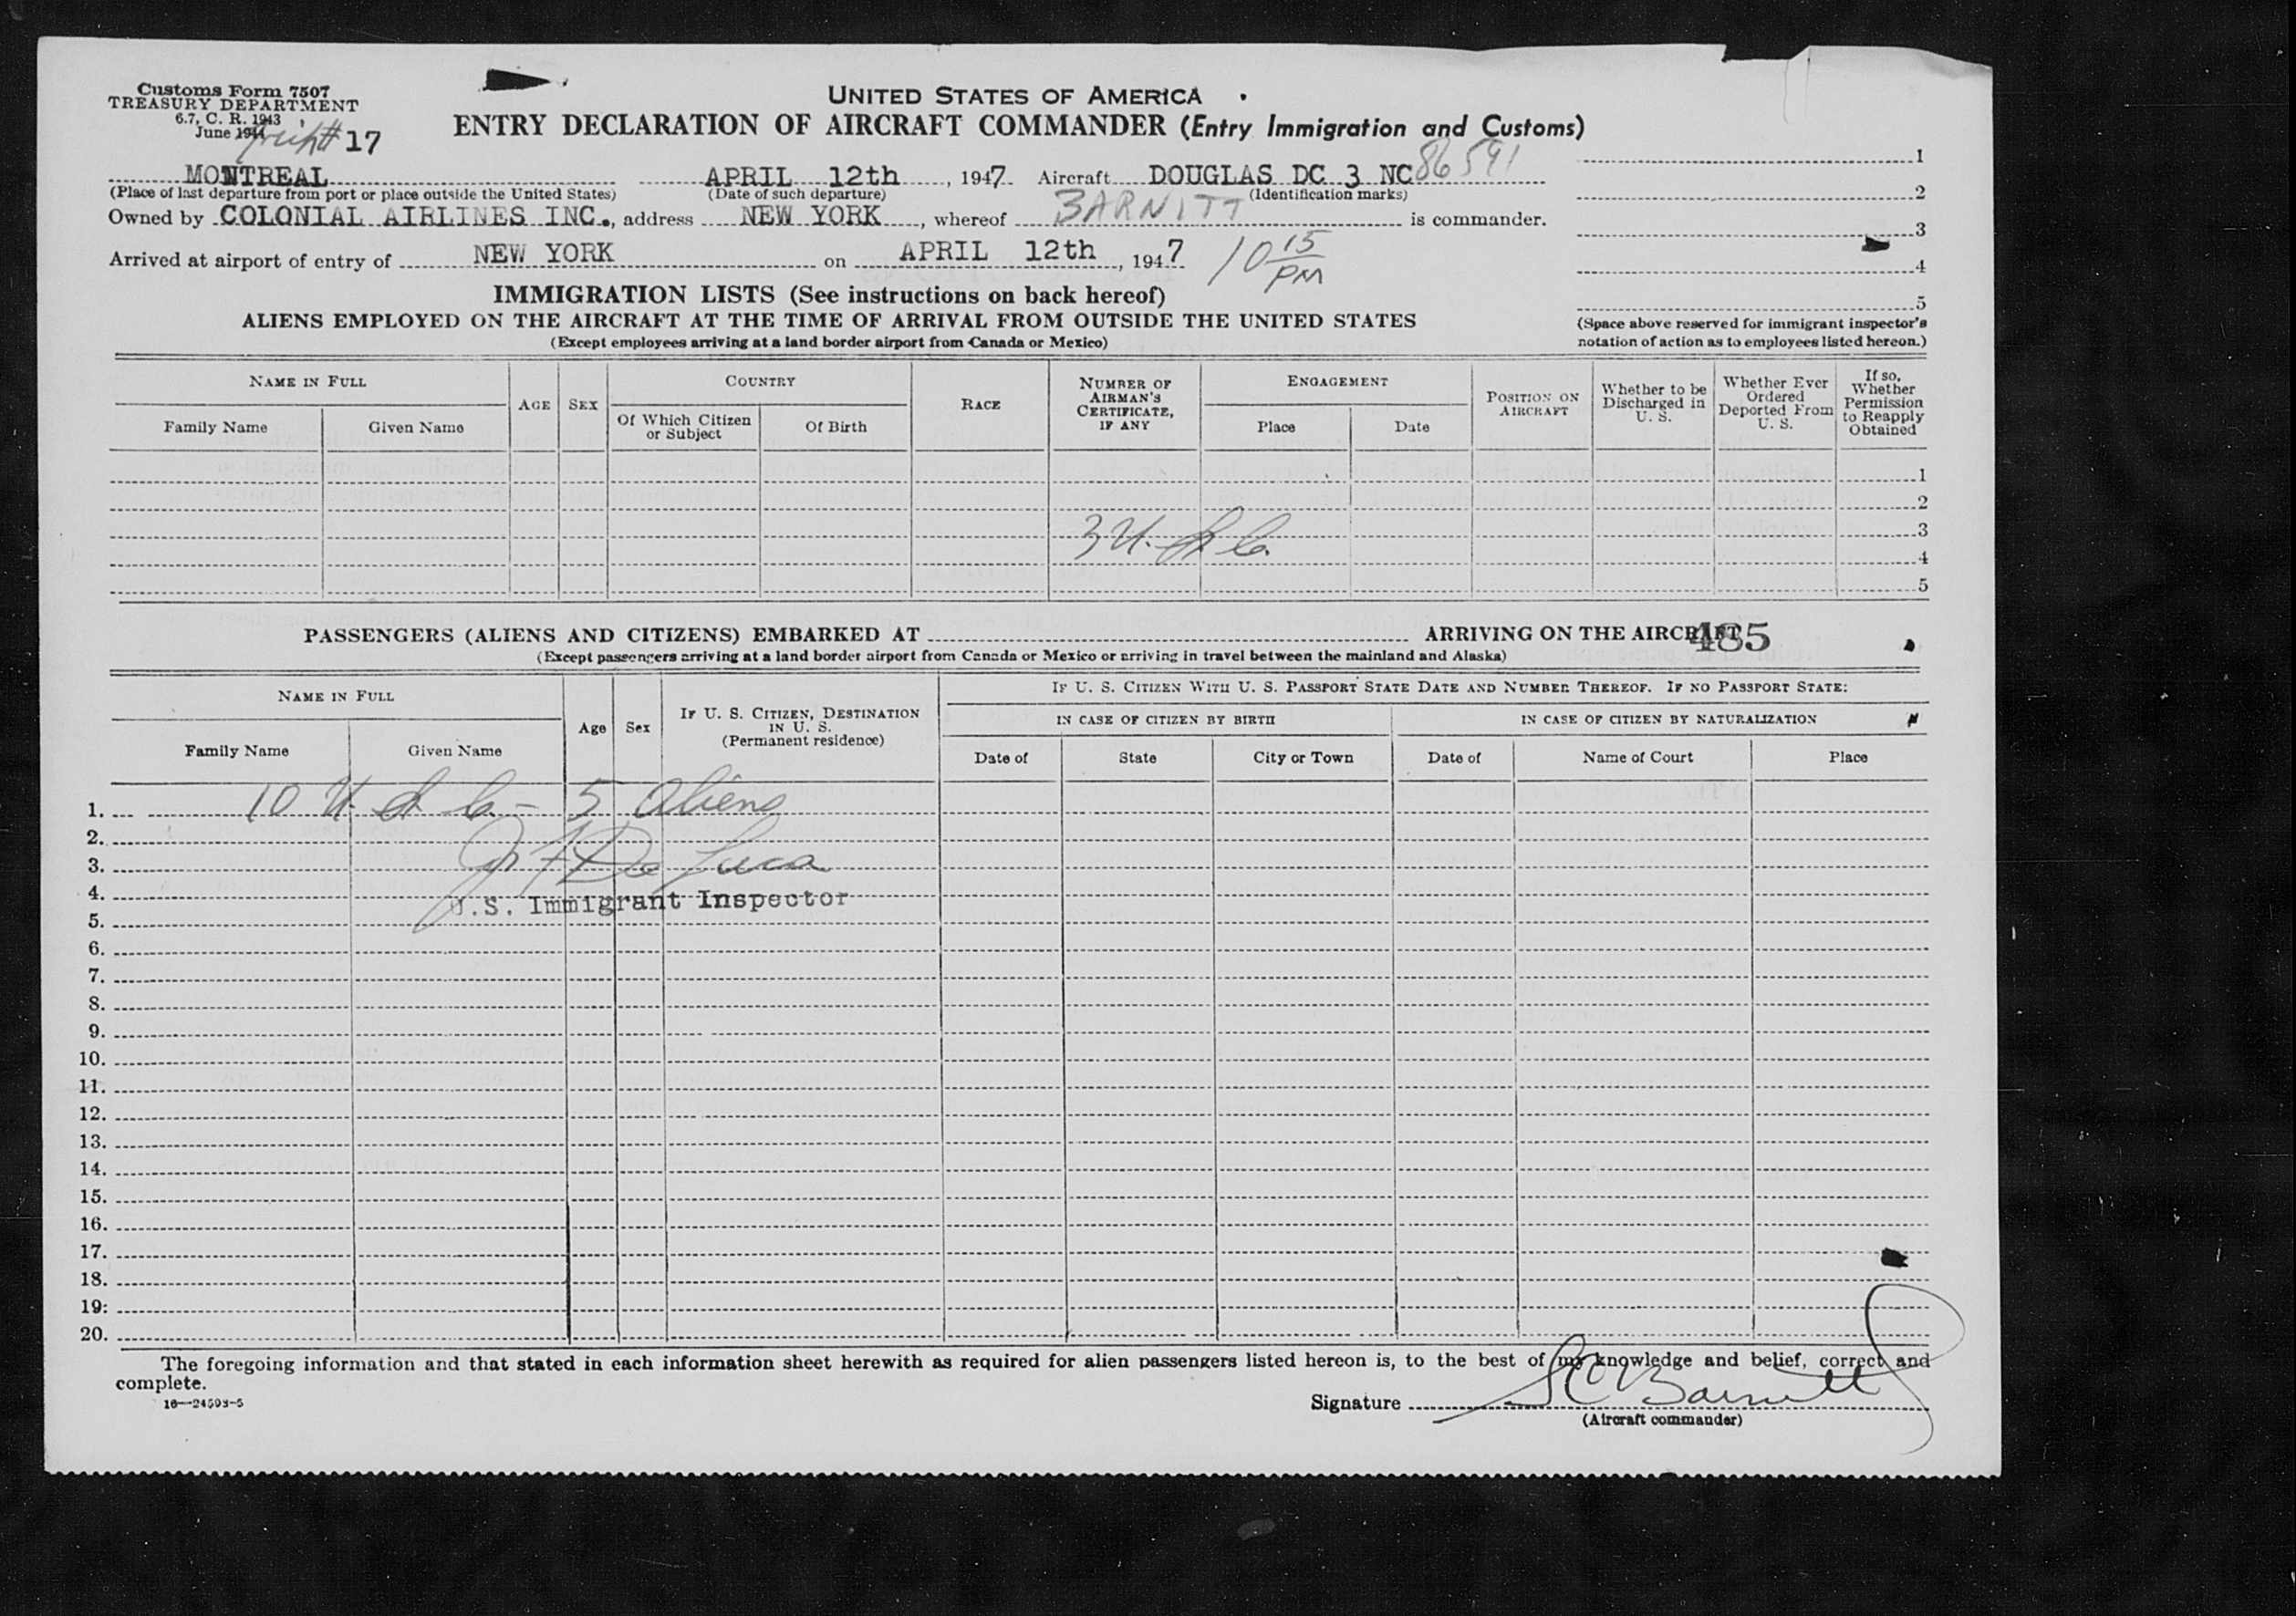 Customs Form 7507
TREASURY DEPARTMENT
6.7, C. R. 1943
June 1944
Trip # 17
UNITED STATES OF AMERICA
ENTRY DECLARATION OF AIRCRAFT COMMANDER (Entry Immigration and Customs)
MONTREAL APRIL 12th, 1947 Aircraft DOUGLAS DC 3 NC 86591
(Place of last departure from port or place outside the United States) (Date of such departure) (Identification marks)
Owned by COLONIAL AIRLINES INC., address NEW YORK, whereof BARNITT is commander.
Arrived at airport of entry of NEW YORK on APRIL 12th, 1947 10 15 PM
1
2
3
4
5
(Space above reserved for immigrant inspector's
notation of action as to employees listed hereon.)
IMMIGRATION LISTS (See instructions on back hereof)
ALIENS EMPLOYED ON THE AIRCRAFT AT THE TIME OF ARRIVAL FROM OUTSIDE THE UNITED STATES
(Except employees arriving at a land border airport from Canada or Mexico)
NAME IN FULL
Family Name Given Name
AGE SEX
COUNTRY
Of Which Citizen or Subject Of Birth
RACE
NUMBER OF AIRMAN'S CERTIFICATE, IF ANY
ENGAGEMENT
Place Date
POSITION ON AIRCRAFT
Whether to be Discharged in U. S.
Whether Ever Ordered Deported From U. S.
If so, Whether Permission to Reapply Obtained
1
2
3 U. S. C. 3
4
5
PASSENGERS (ALIENS AND CITIZENS) EMBARKED AT ARRIVING ON THE AIRCRAFT 485
(Except passengers arriving at a land border airport from Canada or Mexico or arriving in travel between the mainland and Alaska)
NAME IN FULL
Family Name Given Name
Age Sex
IF U. S. CITIZEN, DESTINATION IN U. S. (Permanent residence)
IF U. S. CITIZEN WITH U. S. PASSPORT STATE DATE AND NUMBER THEREOF. IF NO PASSPORT STATE:
IN CASE OF CITIZEN BY BIRTH IN CASE OF CITIZEN BY NATURALIZATION
Date of State City or Town Date of Name of Court Place
1. 10 U. S. C. - 5 Aliens
2.
3. De Luca
4.
U.S. Immigrant Inspector
5.
6.
7.
8.
9.
10.
11.
12.
13.
14.
15.
16.
17.
18.
19.
20.
The foregoing information and that stated in each information sheet herewith as required for alien passengers listed hereon is, to the best of my knowledge and belief, correct and
complete.
16—24593-5
Signature S C Barnitt
(Aircraft commander)